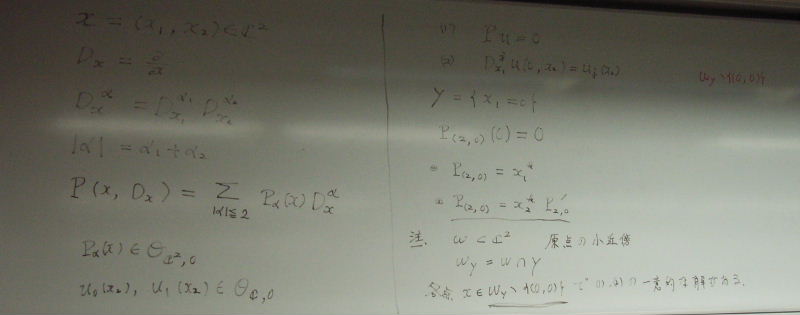 x = (x₁, x₂) ∈ ℂ²
Dₓ = ∂/∂x
Dₓ^α = D_{x₁}^{α₁} D_{x₂}^{α₂}
|α| = α₁ + α₂
P(x, Dₓ) = Σ_{|α|≦2} P_α(x) Dₓ^α
P_α(x) ∈ 𝒪_{ℂ², 0}
u₀(x₂), u₁(x₂) ∈ 𝒪_{ℂ, 0}
(1) Pu = 0
(2) D_{x₁}^j u(0, x₂) = u_j(x₂)
ω_Y \ {(0,0)}
Y = {x₁ = 0}
P_{(2,0)}(0) = 0
P_{(2,0)} = x₁^*
P_{(2,0)} = x₂^* P'_{2,0}
注. ω ⊂ ℂ² 原点の小近傍
ω_Y = ω ∩ Y
各点 x ∈ ω_Y \ {(0,0)} で (1),(2) の一意的な解がある.